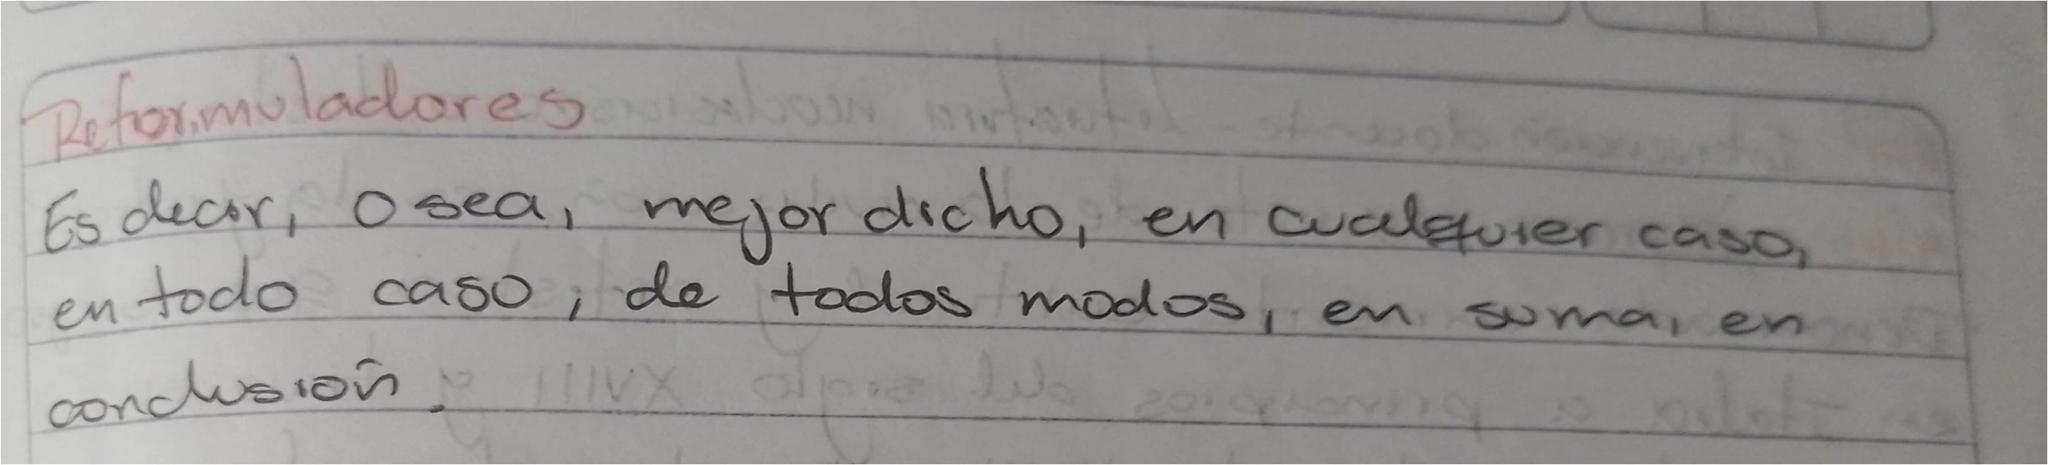 Reformuladores
Es decir, o sea, mejor dicho, en cualquier caso,
en todo caso, de todos modos, en suma, en
conclusión.